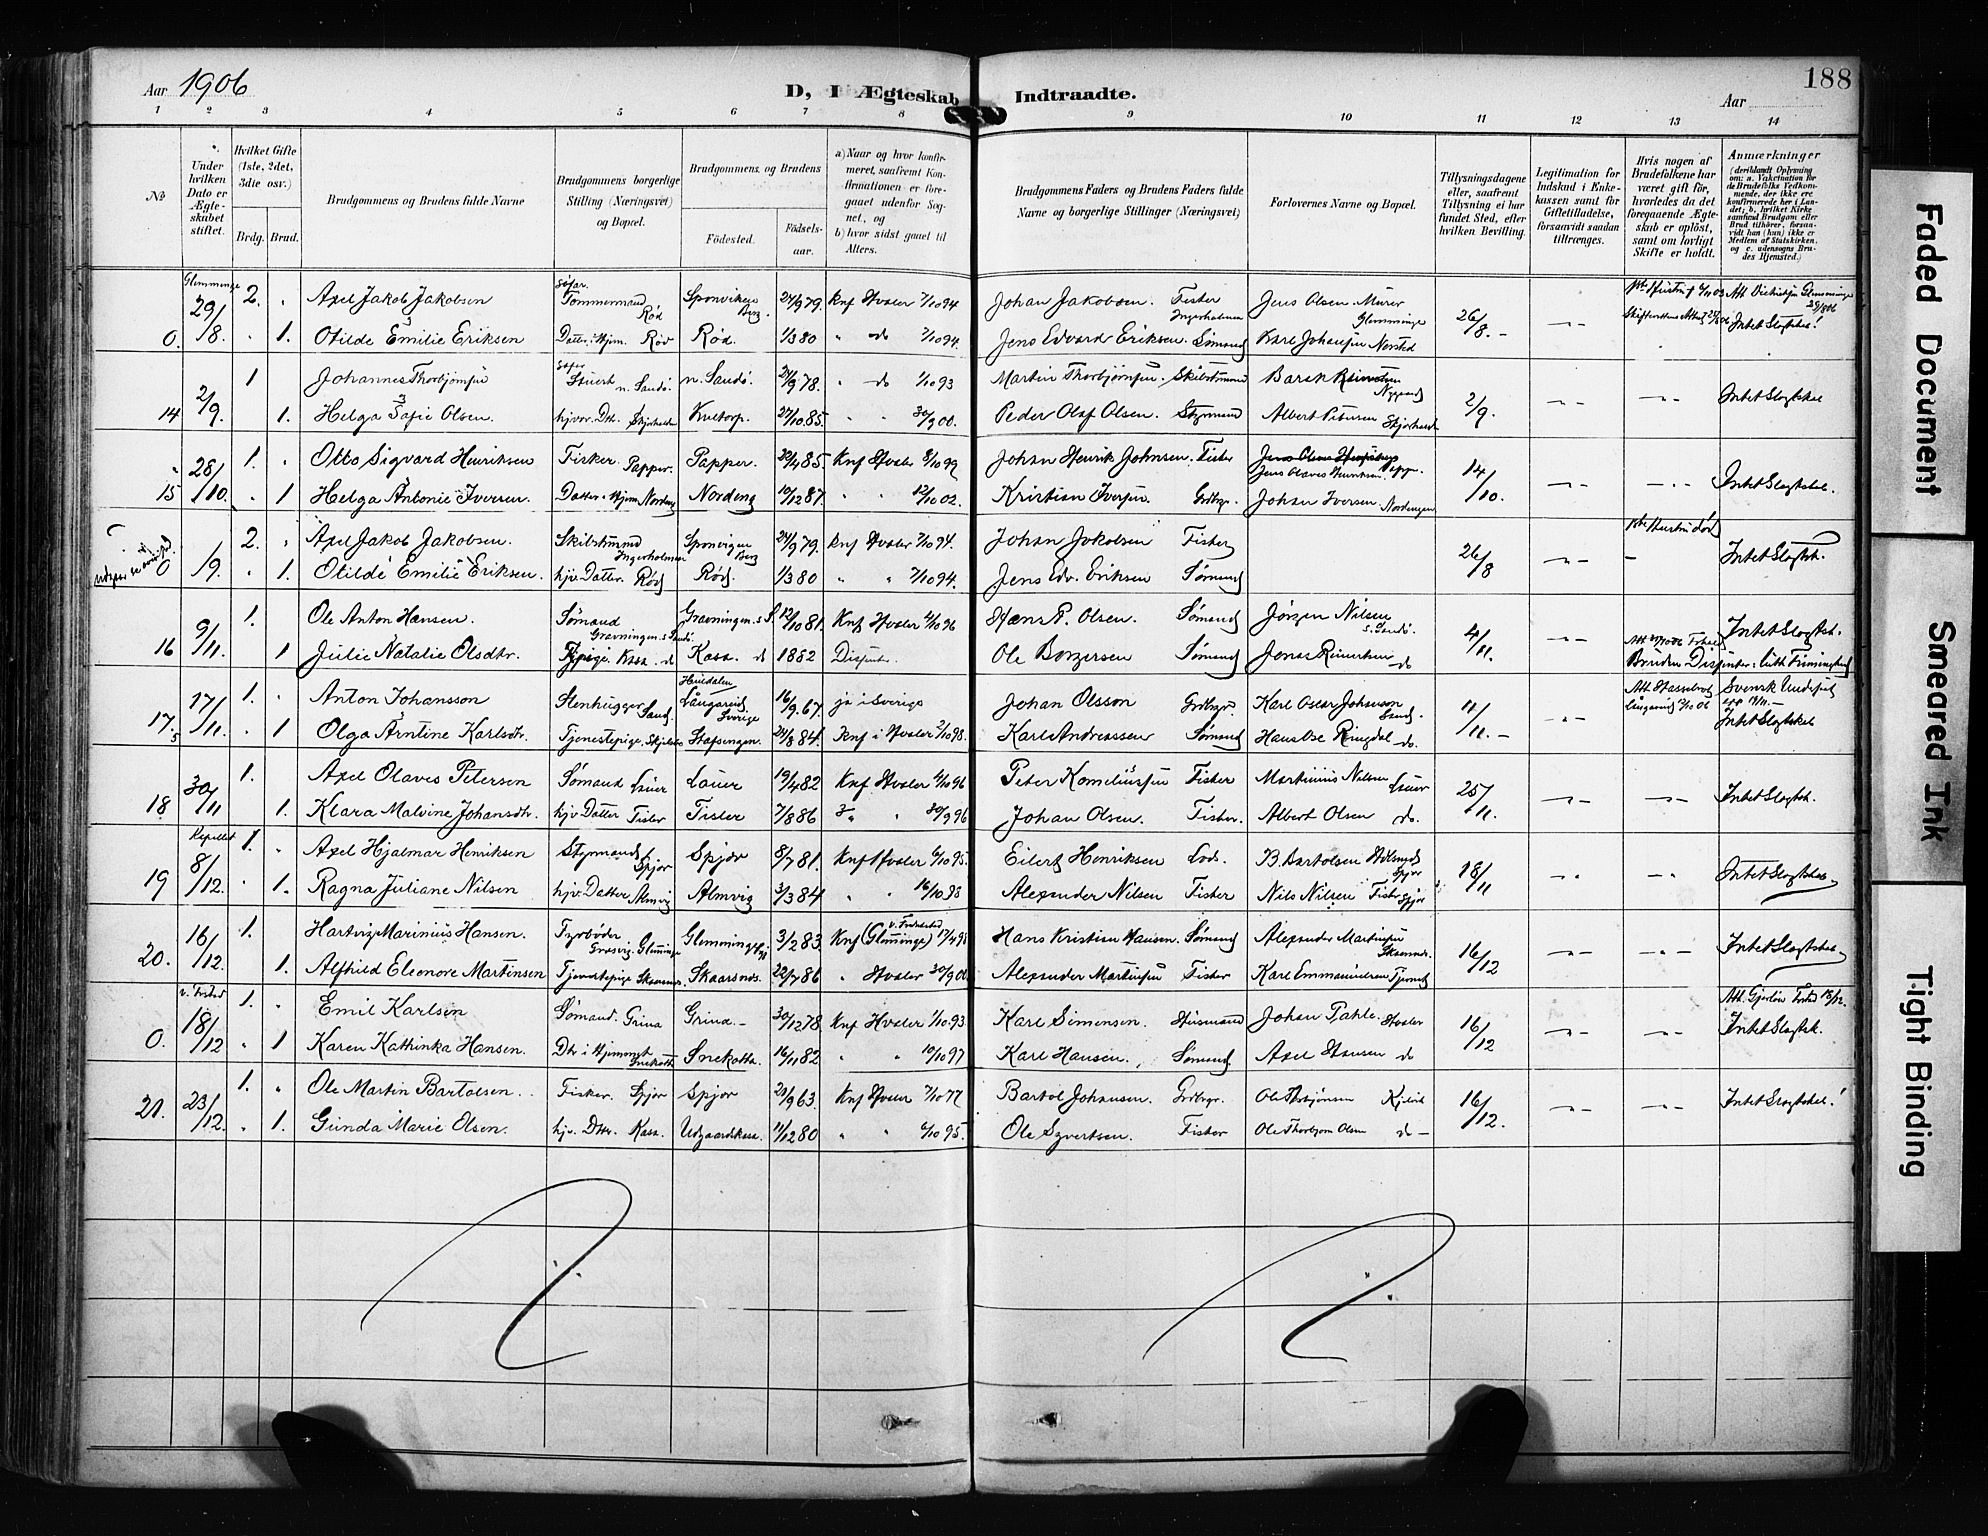 Aar 1906
D, I Ægteskab Indtraadte.
188
Aar
1 2 3 4 5 6 7 8 9 10 11 12 13 14
No
Under hvilken Dato er Ægteskabet stiftet.
Hvilket Gifte (1ste, 2det, 3die osv.)
Brdg. Brud.
Brudgommens og Brudens fulde Navne
Brudgommens borgerlige Stilling (Næringsvei) og Bopæl.
Brudgommens og Brudens
Fødested. Fødselsaar.
a) Naar og hvor konfirmeret, saafremt Konfirmationen er foregaaet udenfor Sognet, og
b) hvor sidst gaaet til Alters.
Brudgommens Faders og Brudens Faders fulde Navne og borgerlige Stillinger (Næringsvei)
Forlovernes Navne og Bopæl.
Tillysningsdagene eller, saafremt Tillysning ei har fundet Sted, efter hvilken Bevilling.
Legitimation for Indskud i Enkekassen samt for Giftetilladelse, forsaavidt saadan tiltrænges.
Hvis nogen af Brudefolkene har været gift før, hvorledes da det foregaaende Ægteskab er opløst, samt om lovligt Skifte er holdt.
Anmærkninger (deriblandt Oplysning om: a. Vakcination for de Brudefolks Vedkommende, der ikke ere konfirmerede her i Landet; b. hvilket Kirkesamfund Brudgom eller Brud tilhører, forsaavidt han (hun) ikke er Medlem af Statskirken, og c. udensogns Brudes Hjemsted.)
Glemminge
29/8. 2. " Axel Jakob Jakobsen Tømmermand Rød Sponviken Berg. 24/9 79. Knf Hvaler 7/10 94 Johan Jakobsen. Fisker Ingerholmen Jens Olsen Murer Glemminge 26/8.-
0. " 1. Otilde Emilie Eriksen Datter i Hjem. Rød Rød. 1/3 80 " do 7/10 94. Jens Edvard Eriksen. Sømand Karl Johansen Intet Slægtskab!
2/9. 1 Johannes Thorbjørnsen n. Sandø. n. Sandø. 24/9 78. " do 1/10 93 Martin Thorbjørnsen. Skibstømmand 2/9. Intet Slægtskab
14 1. Helga Sofie Olsen. hjvær. Dtr. Kveltorp. 27/10 85. " " 30/9 00. Peder Olaf Olsen. Styrmand Albert Petersen
28/10. 1. " Otto Sigvard Henriksen Fisker Papper. Papper. 22/4 85. Knf Hvaler 8/10 99 Johan Henrik Johnsen. Fisker Jens Olaves Henriksen 14/10. Intet Slægtskab.
15 " 1 Helga Antonie Iversen. Datter i Hjem Nordeng Nordeng 19/12 87. " " 12/10 02. Kristian Iversen. Grdbgr. Johan Iversen Nordengen
/9. 2. " Axel Jakob Jakobsen. Skibstmmd Ingerholmen Sponvigen Berg 24/9 79. Knf Hvaler 7/10 94. Johan Jakobsen Fisker 26/8 Intet Slægtsk.
0 " 1. Otilde Emilie Eriksen. hjv. Datter. Rød Rød. 1/3 80 " " 7/10 94. Jens Edv. Eriksen Sømand
9/11. 1. Ole Anton Hansen. Sømand Gravningen s Sandø. Gravningen s S. 12/10 81. Knf Hvaler 4/10 96 Hans P. Olsen. Sømand Jørgen Nilsen s. Sandø. 4/11. Intet Slægtsk.
16 1 Julie Natalie Olsdtr. Kasa. do Kasa. do 1882 Dissenter. Ole Borgersen Sømand Jonas Reinertsen do Bruden Dissenter:
17/11. 1. Anton Johansson Stenhugger Sand. Långareid Sverige 16/9 67. ja i Sverige Johan Olsson Grdbgr. Karl Oscar Johansson Sand. 11/11.- Svensk Undersåt
17. " 1 Olga Arntine Karlsdtr. Tjenestepige. Stafsengen. 24/8 84. Knf i Hvaler 2/10 98. Karl Andreassen Sømand Hans Ose Ringdal do. Intet Slægtskab
30/11 1. Axel Olaves Petersen Sømand Lauer Lauer 19/4 82 Knf Hvaler 4/10 96 Peter Korneliussen Fisker Martinius Nilsen Lauer 25/11. Intet Slægtsk.
18 1. Klara Malvine Johansdtr. hjv Datter Tisler Tisler 7/8 86 Johan Olsen. Fisker. Albert Olsen do.
Kapellet
8/12. 1. " Axel Hjalmar Henriksen Styrmand Spjær Spjær 8/7 81. Knf Hvaler 6/10 95. Eilert Henriksen Lods. B. Bartolsen Spjær 18/11 Intet Slægtskab
19 " 1. Ragna Juliane Nilsen hjv. Datter Almvig Almvig 3/3 84 " " 16/10 98 Alexander Nilsen Fisker Nils Nilsen Fisker Spjær
16/12. 1. Hartvig Marinius Hansen. Fyrbøder Glemminge 3/2 83. Knf (Glemminge) Hans Kristian Hansen. Sømand Alexander Martinsen 16/12 Intet Slægtskab
20. 1. Alfhild Eleonore Martinsen Tjenestepige Skaarsnes. Skaarsnes. 22/7 86 " Hvaler 30/9 00. Alexander Martinsen Fisker Karl Emmanuelsen
18/12 1. " Emil Karlsen Sømand. Grina Grina.- 30/12 78 Knf Hvaler 1/10 93. Karl Simensen. Husmand Johan Pahle. Hvaler 16/12 Intet Slægtsk.
0. " 1 Karen Kathinka Hansen. Dtr i Hjemmet Snekotta Snekotta. 16/11 82 " " 10/10 97 Karl Hansen. Sømand Axel Hansen do
23/12. 1. " Ole Martin Bartolsen. Fisker. Spjær Spjær 21/9 63. Knf Hvaler 7/10 77 Bartol Johansen. Grdbgr. Ole Thorbjørnsen 16/12. Intet Slægtskab!
21. " 1. Gunda Marie Olsen. hjv. Dtr. Kasa. Udgaardskasa. 11/12 80 " " 6/10 95. Ole Syvertsen. Fisker Ole Thorbjørn Olsen do
Faded Document
Smeared Ink
Tight Binding